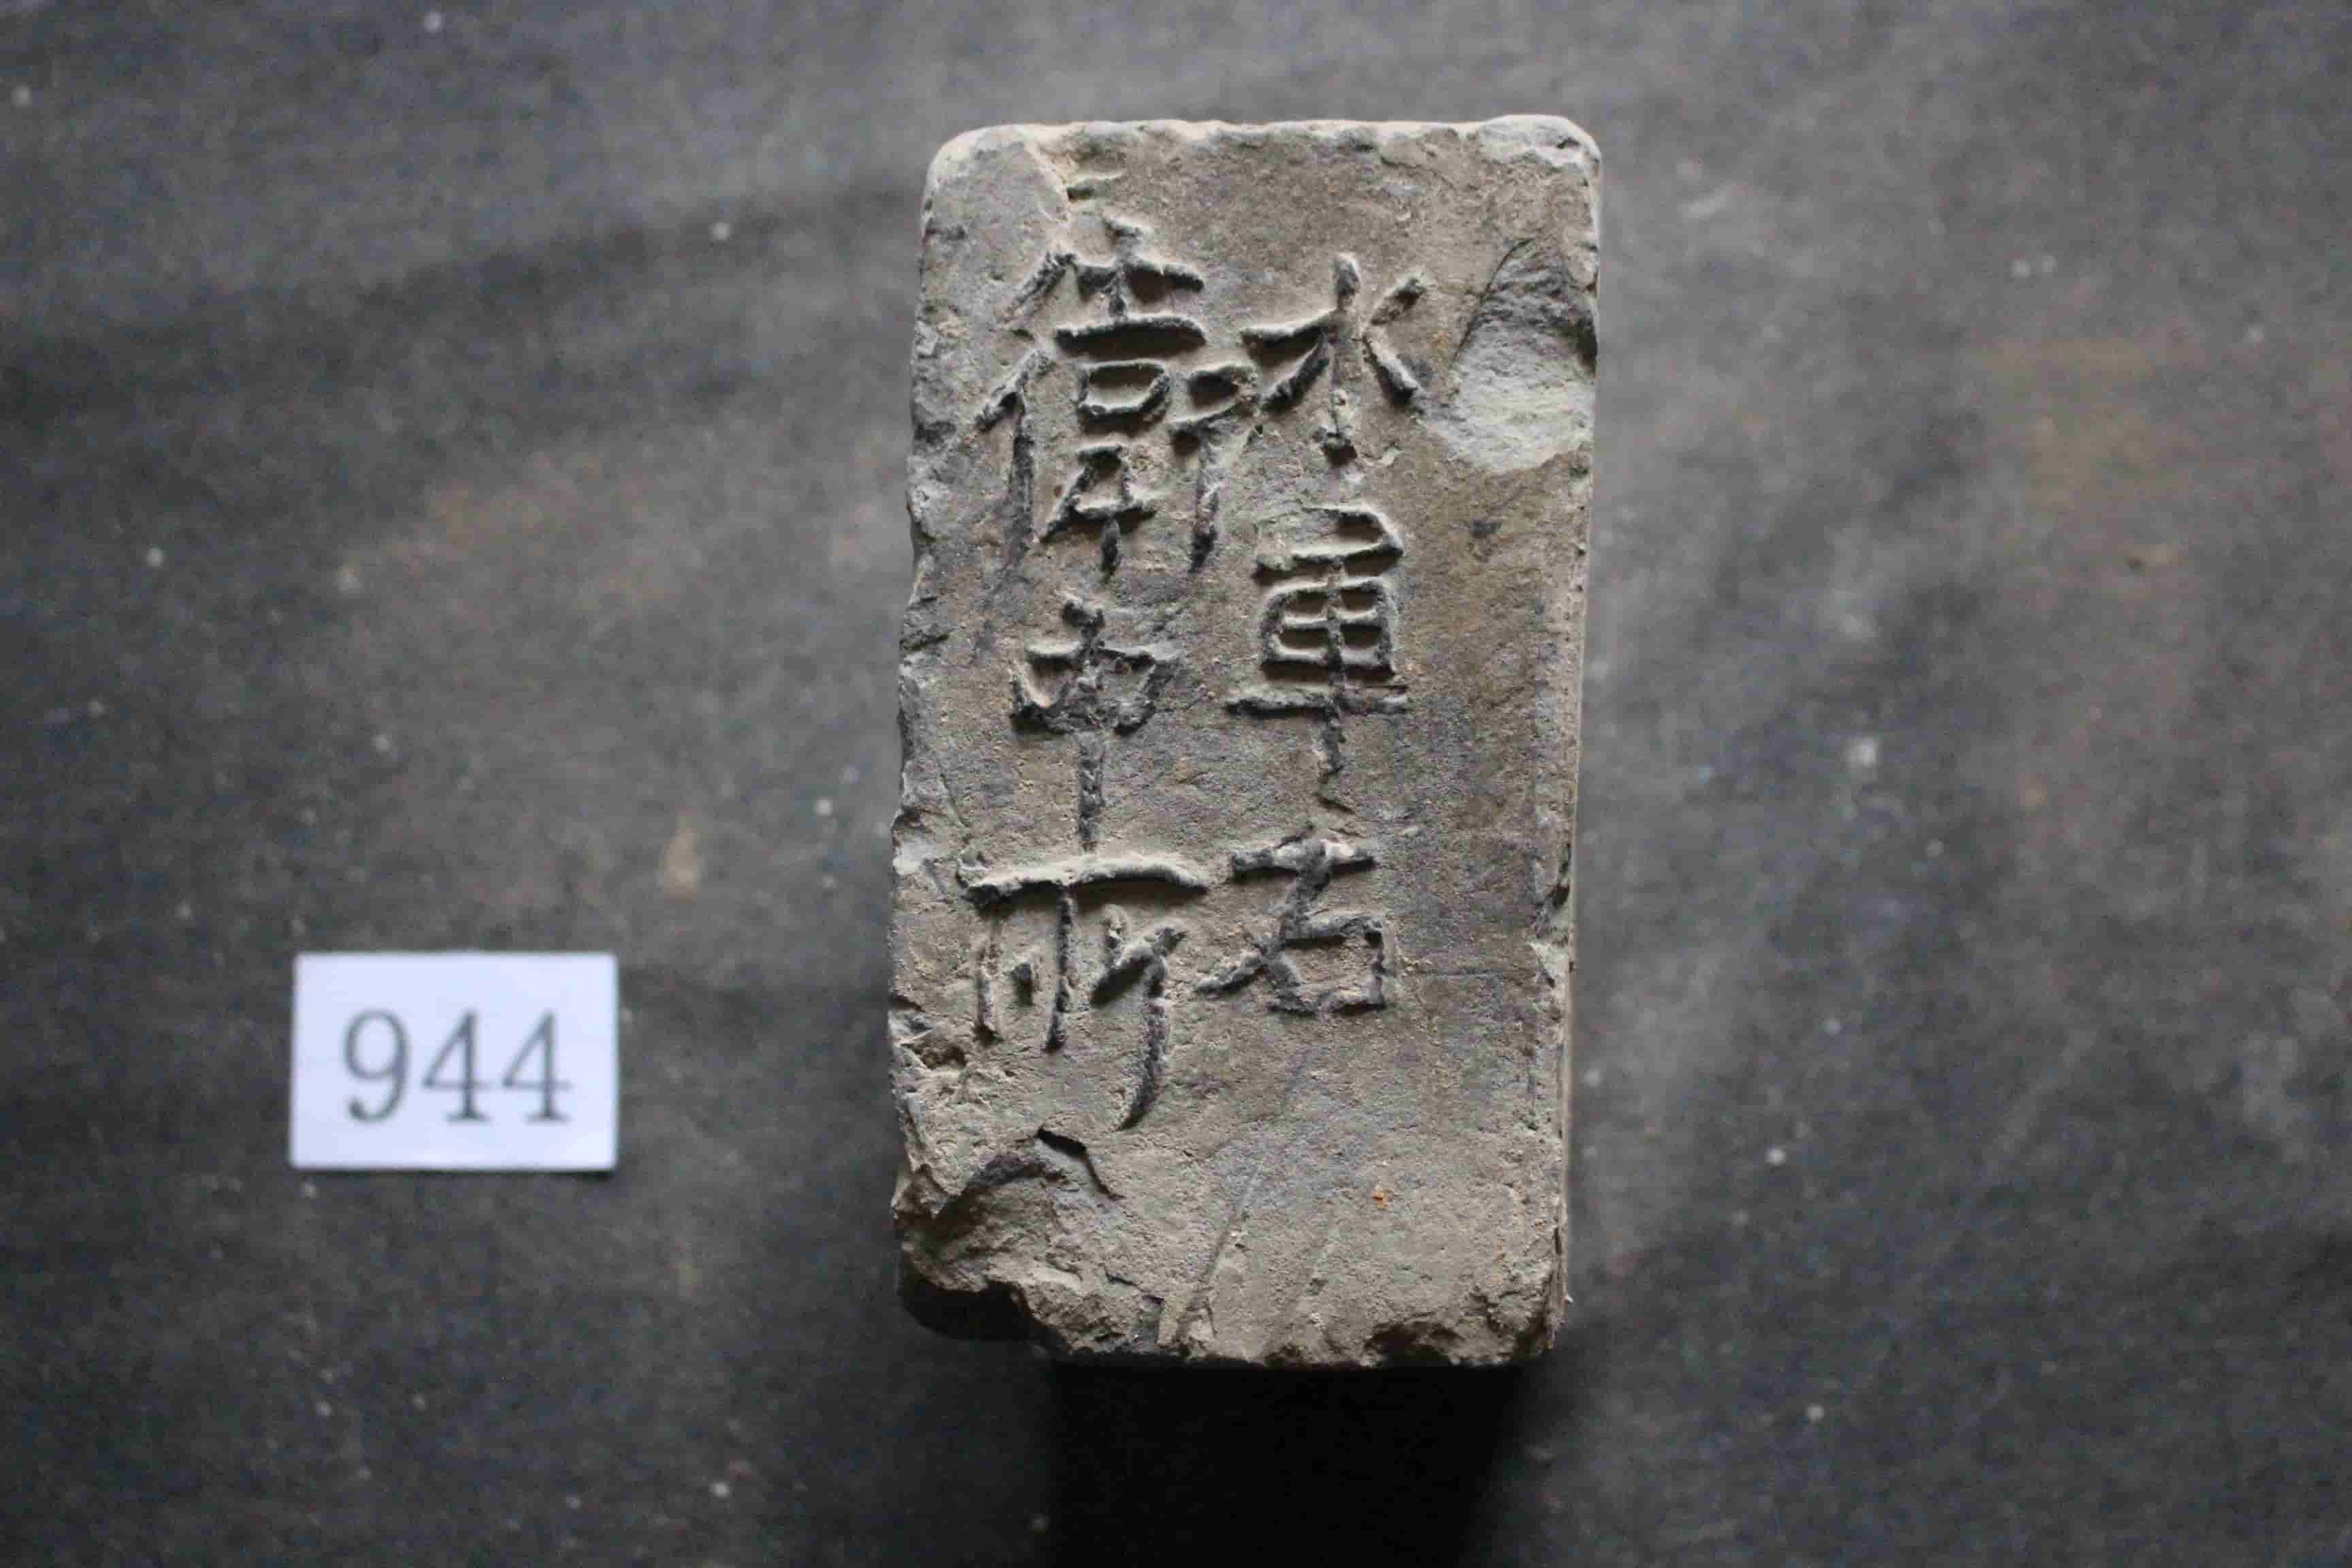 水軍右
衛中所
944